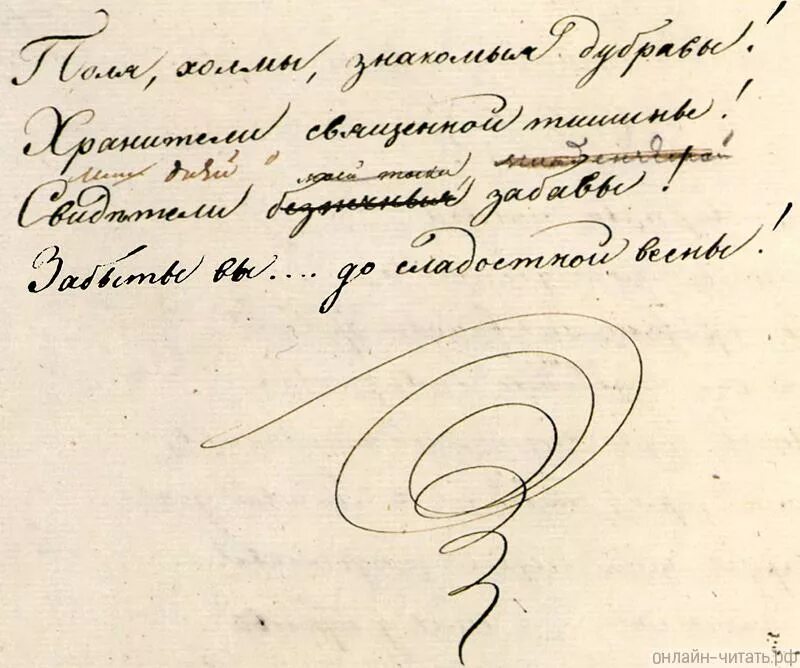 Поля, холмы, знакомыя дубравы!
Хранители священной тишины!
дней моей тоски,
Свидѣтели безпечныя забавы!
Забыты вы.... до сладостной весны!
онлайн-читать.рф